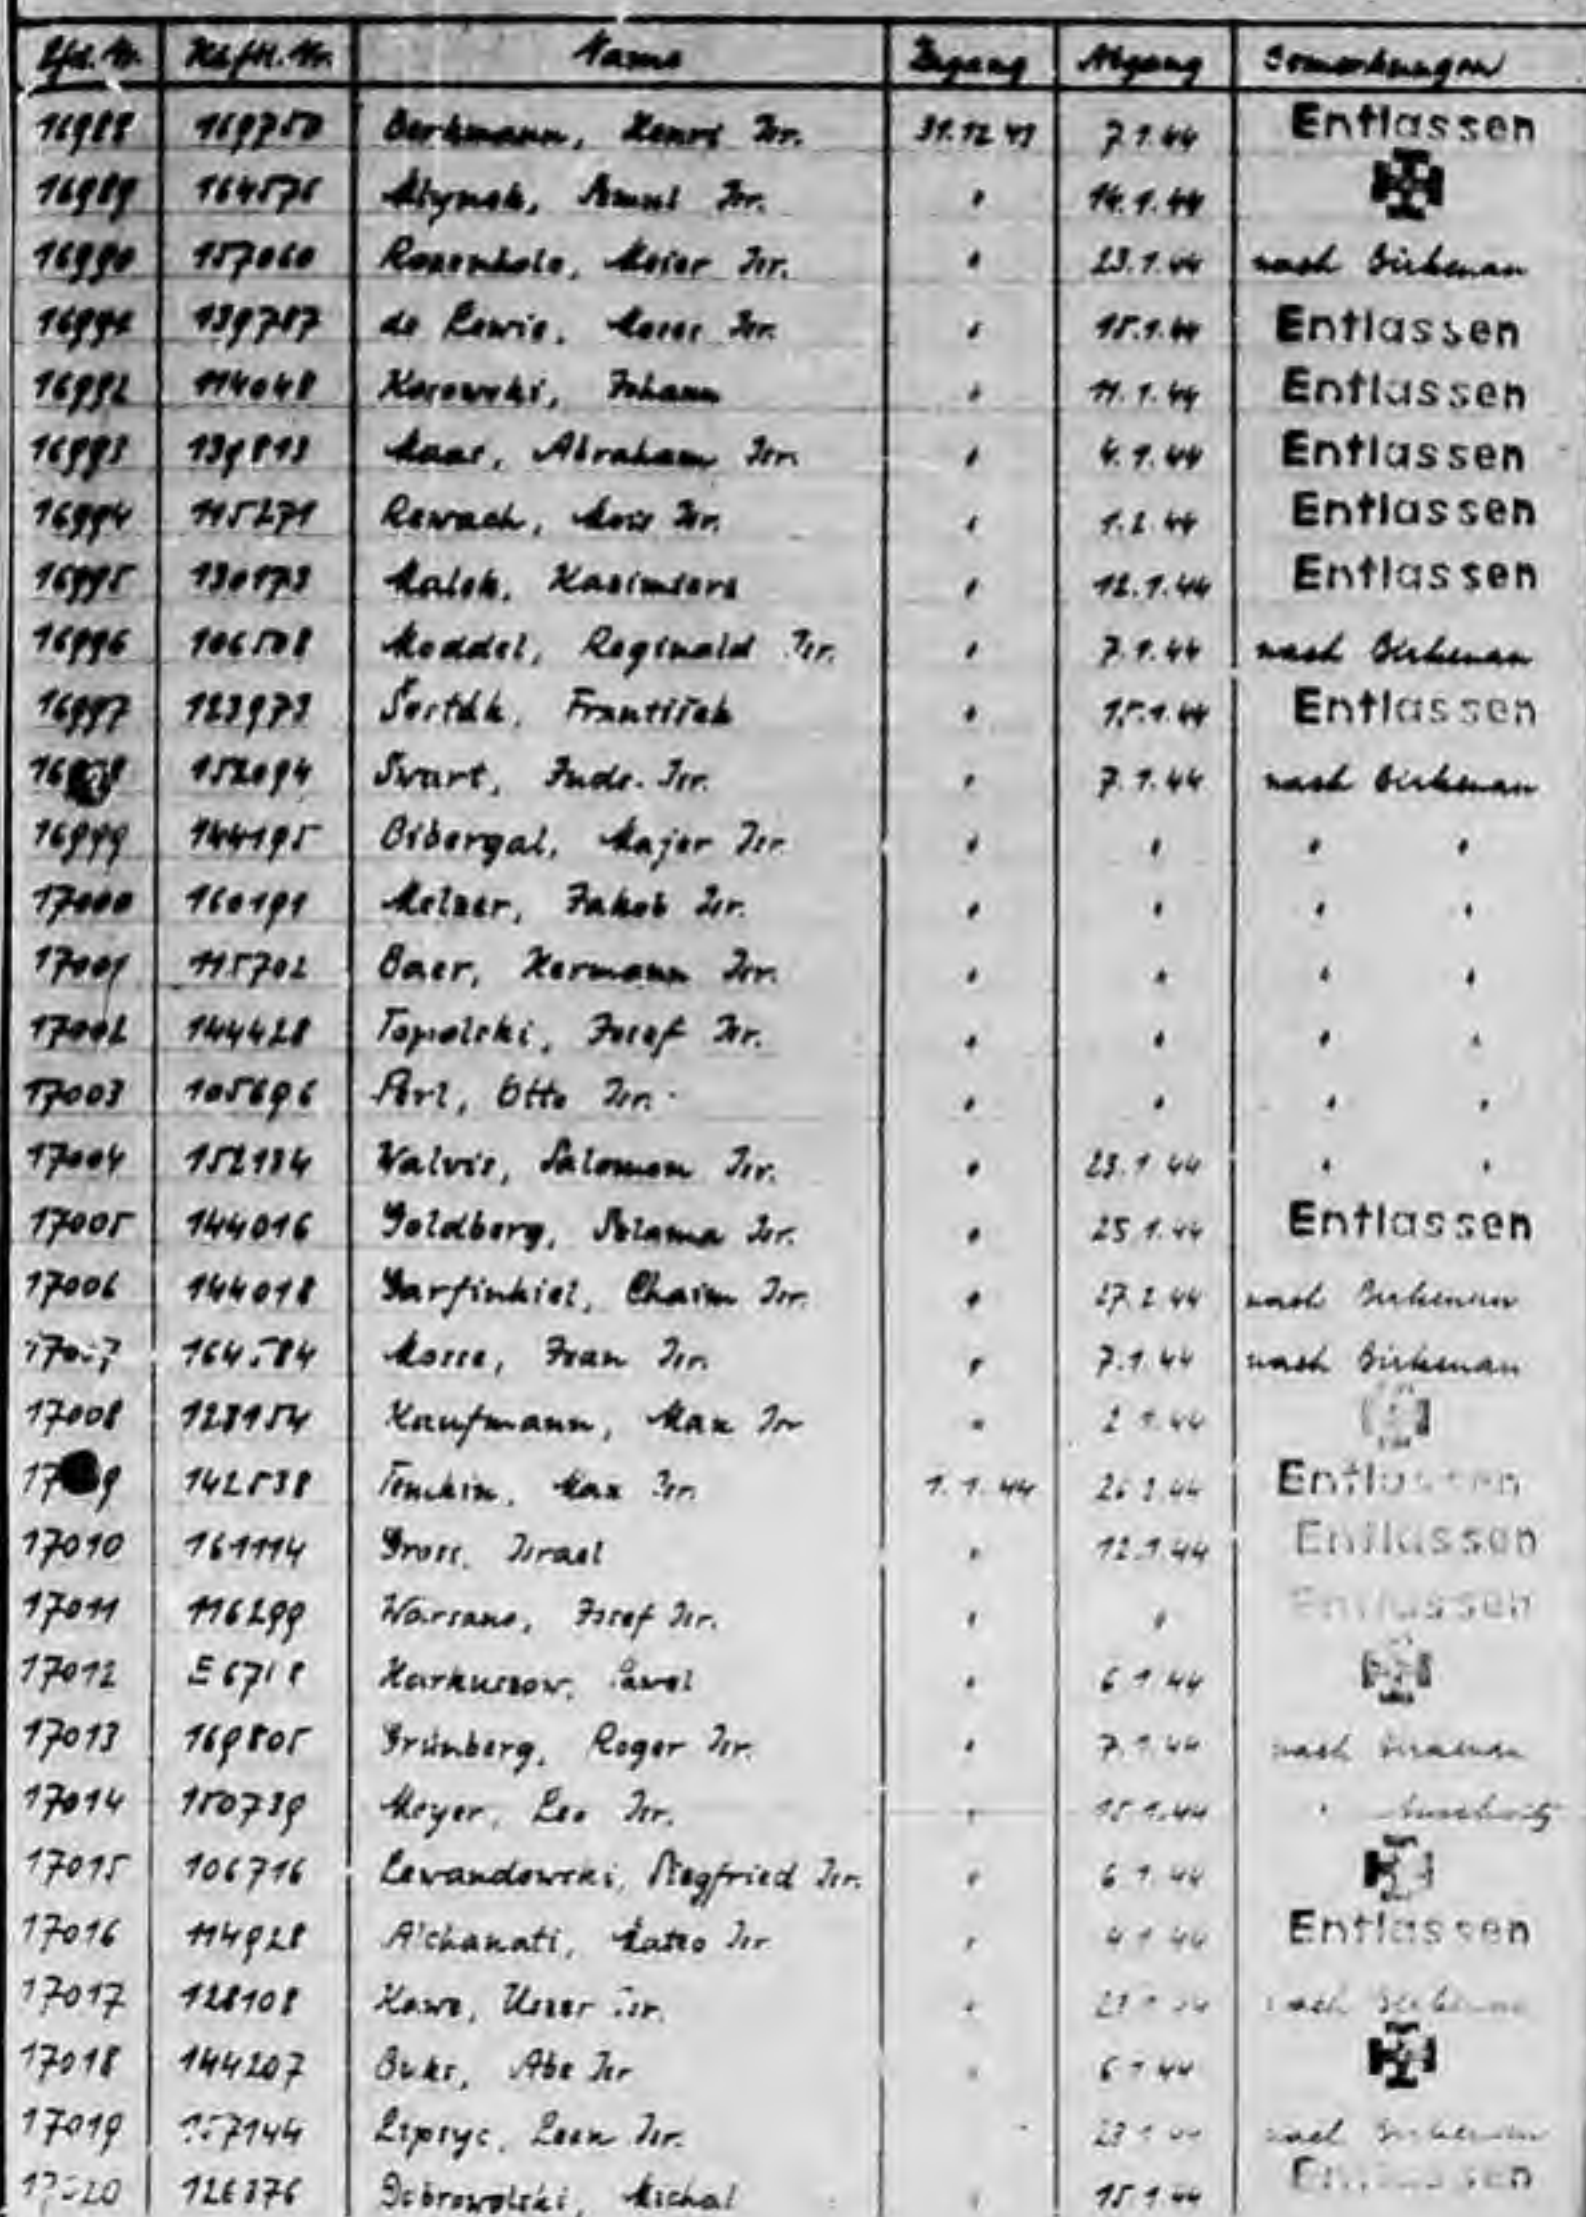 Lfd. Nr. Häftl. Nr. Name Zugang Abgang Bemerkungen
16988 169750 Berkmann, Henri Isr. 31.12.43 7.1.44 Entlassen
16989 164576 Isr. " 14.1.44
16990 157060 Meier Isr. " 23.1.44 nach Birkenau
16991 139787 de Isr. " 15.1.44 Entlassen
16992 114048 Johann " 11.1.44 Entlassen
16993 139813 Maas, Abraham Isr. " 4.1.44 Entlassen
16994 115271 Rewach, Isr. " 1.2.44 Entlassen
16995 130173 Malek, " 12.1.44 Entlassen
16996 106508 Moddel, Reginald Isr. " 7.1.44 nach Birkenau
16997 123973 František " 15.1.44 Entlassen
152094 Swart, Isr. " 7.1.44 nach Birkenau
16999 144195 Bibergal, Majer Isr " " " "
17000 160191 Melzer, Jakob Isr. " " " "
17001 115702 Baer, Hermann Isr. " " " "
17002 144428 Topolski, Josef Isr. " " " "
17003 105696 Perl, Otto Isr. " " " "
17004 152134 Walvis, Salomon Isr. " 23.1.44 " "
17005 144016 Goldberg, Isr. " 25.1.44 Entlassen
17006 144018 Garfinkiel, Chaim Isr. " 27.2.44 nach Birkenau
Isr. " 7.1.44 nach Birkenau
17008 128154 Kaufmann, Max Isr " 2.1.44
142538 Temkin, Max Isr. 1.1.44 Entlassen
17010 161114 Gross, Israel " 12.1.44 Entlassen
17011 116299 Warsano, Josef Isr. " " Entlassen
17012 " 6.1.44
17013 169805 Grünberg, Roger Isr. " 7.1.44 nach Birkenau
17014 150739 Meyer, Leo Isr. " 15.1.44 " Auschwitz
17015 106716 Lewandowski, Siegfried Isr. " 6.1.44
17016 114928 Alchanati, Isr " 4.1.44 Entlassen
17017 128108 Isr. " nach Birkenau
17018 144207 Buks, Abe Isr " 6.1.44
17019 Isr. nach Birkenau
Dobrowolski, Michal " 15.1.44 Entlassen